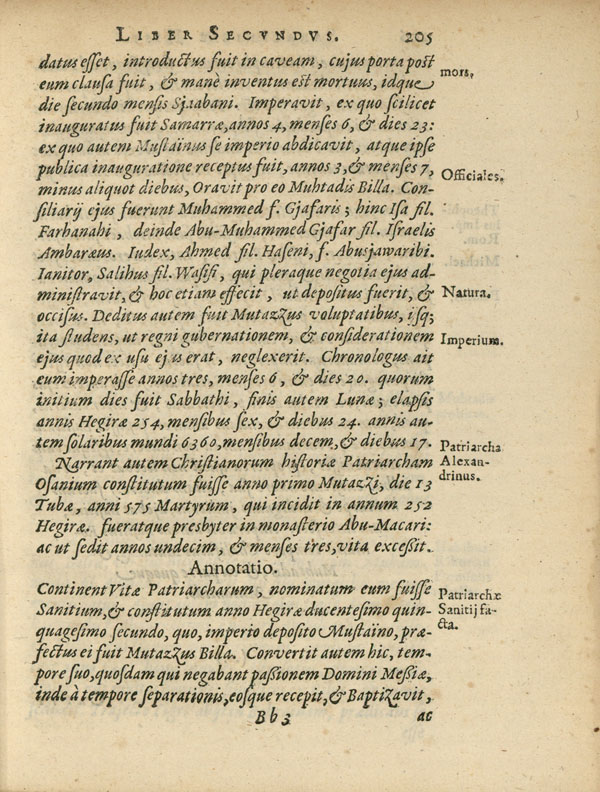 LIBER SECVNDVS. 205
datus esset, introductus fuit in caveam, cujus porta post
eum clausa fuit, & manè inventus est mortuus, idque
mors,
die secundo mensis Sjaabani. Imperavit, ex quo scilicet
inauguratus fuit Samarræ, annos 4, menses 6, & dies 23:
ex quo autem Mustainus se imperio abdicavit, atque ipse
publica inauguratione receptus fuit, annos 3, & menses 7,
minus aliquot diebus, Oravit pro eo Muhtadis Billa. Con-
Officiales.
siliarij ejus fuerunt Muhammed f. Gjafaris; hinc Isa fil.
Farhanahi, deinde Abu-Muhammed Gjafar fil. Israelis
Ambaræus. Iudex, Ahmed fil. Haseni, f. Abusjawaribi.
Ianitor, Salihus fil. Wasifi, qui pleraque negotia ejus ad-
ministravit, & hoc etiam effecit, ut depositus fuerit, &
Natura.
occisus. Deditus autem fuit Mutazzus voluptatibus, isq;
ita studens, ut regni gubernationem, & considerationem
Imperium.
ejus quod ex usu ejus erat, neglexerit. Chronologus ait
eum imperasse annos tres, menses 6, & dies 20. quorum
initium dies fuit Sabbathi, finis autem Lunæ; elapsis
annis Hegiræ 254, mensibus sex, & diebus 24. annis au-
tem solaribus mundi 6360, mensibus decem, & diebus 17.
Patriarcha
Alexan-
drinus.
Narrant autem Christianorum historiæ Patriarcham
Osanium constitutum fuisse anno primo Mutazzi, die 13
Tubæ, anni 575 Martyrum, qui incidit in annum 252
Hegiræ. fueratque presbyter in monasterio Abu-Macari:
ac ut sedit annos undecim, & menses tres, vita excessit.
Annotatio.
Continent Vitæ Patriarcharum, nominatum eum fuisse
Patriarchæ
Sanitij fa-
cta.
Sanitium, & constitutum anno Hegiræ ducentesimo quin-
quagesimo secundo, quo, imperio deposito Mustaïno, præ-
fectus ei fuit Mutazzus Billa. Convertit autem hic, tem-
pore suo, quosdam qui negabant passionem Domini Messiæ,
inde à tempore separationis, eosque recepit, & Baptizavit,
Bb3 ac